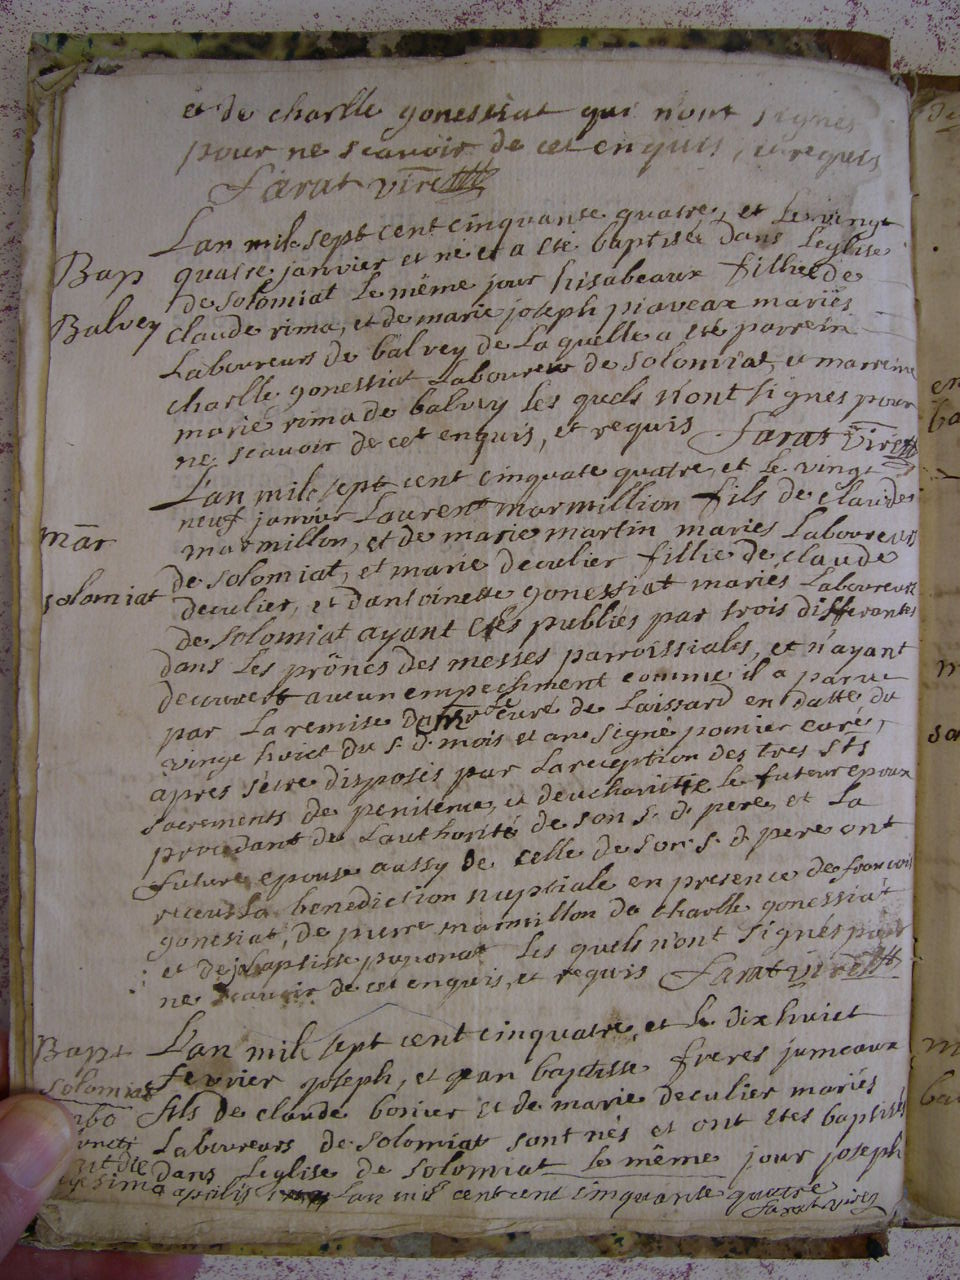 et de charlle gonessiat qui n'ont signés
pour ne scavoir de cet enquis, et requis
Sarat vire
Lan mil sept cent cinquante quatre, et le vingt
Bap quatre janvier et né et a eté baptisée dans Leglise
de Solomiat le même jour hisabeaux filliee de
Balvey claude rima, et de marie joseph piaveax mariés
Laboureurs de balvey de La quelle a eté parrein
charlle gonessiat Laboureur de solomiat, et marreine
marie rima de balvey les quels n'ont signés pour
ne scavoir de cet enquis, et requis Sarat vire
L'an mil sept cent cinquate quatre, et le vingt
neuf janvier Laurent marmillion fils de claude
mar marmillon, et de marie martin mariés Laboureurs
de solomiat, et marie deculier fillie de claude
solomiat deculier, et dantoinette gonessiat mariés Laboureurs
de solomiat ayant etés publiés par trois differantes
dans les prönes des messes parroissiales, et n'ayant
decouvert aucun empechment comme il a parue
par La remise curé de Laissard en datte du
vingt huict du s. d. mois et an signé curé,
apres sétre disposés par La reception des tres sts
sacrements de penitence, et deucharittie le futeur epoux
procedant de Lauthorité de son s. d. pere, et La
future epouse aussy de celle de son s. d. pere ont
receus La benediction nuptiale en presence de francois
gonesiat, de pierre marmillon de charlle gonessiat
et de baptiste les quels n'ont signés pour
ne scavoir de cet enquis, et requis Sarat vire
Bapt L'an mil sept cent cinquatre, et le dix huict
Solomiat fevrier joseph, et jean baptisse freres jumeaux
ambo fils de claude borier et de marie deculier mariés
Laboureurs de solomiat sont nés et ont etés baptisés
die dans Leglise de solomiat le même jour joseph
aprilis Lan mil cent cent cinquante quatre
Sarat vire